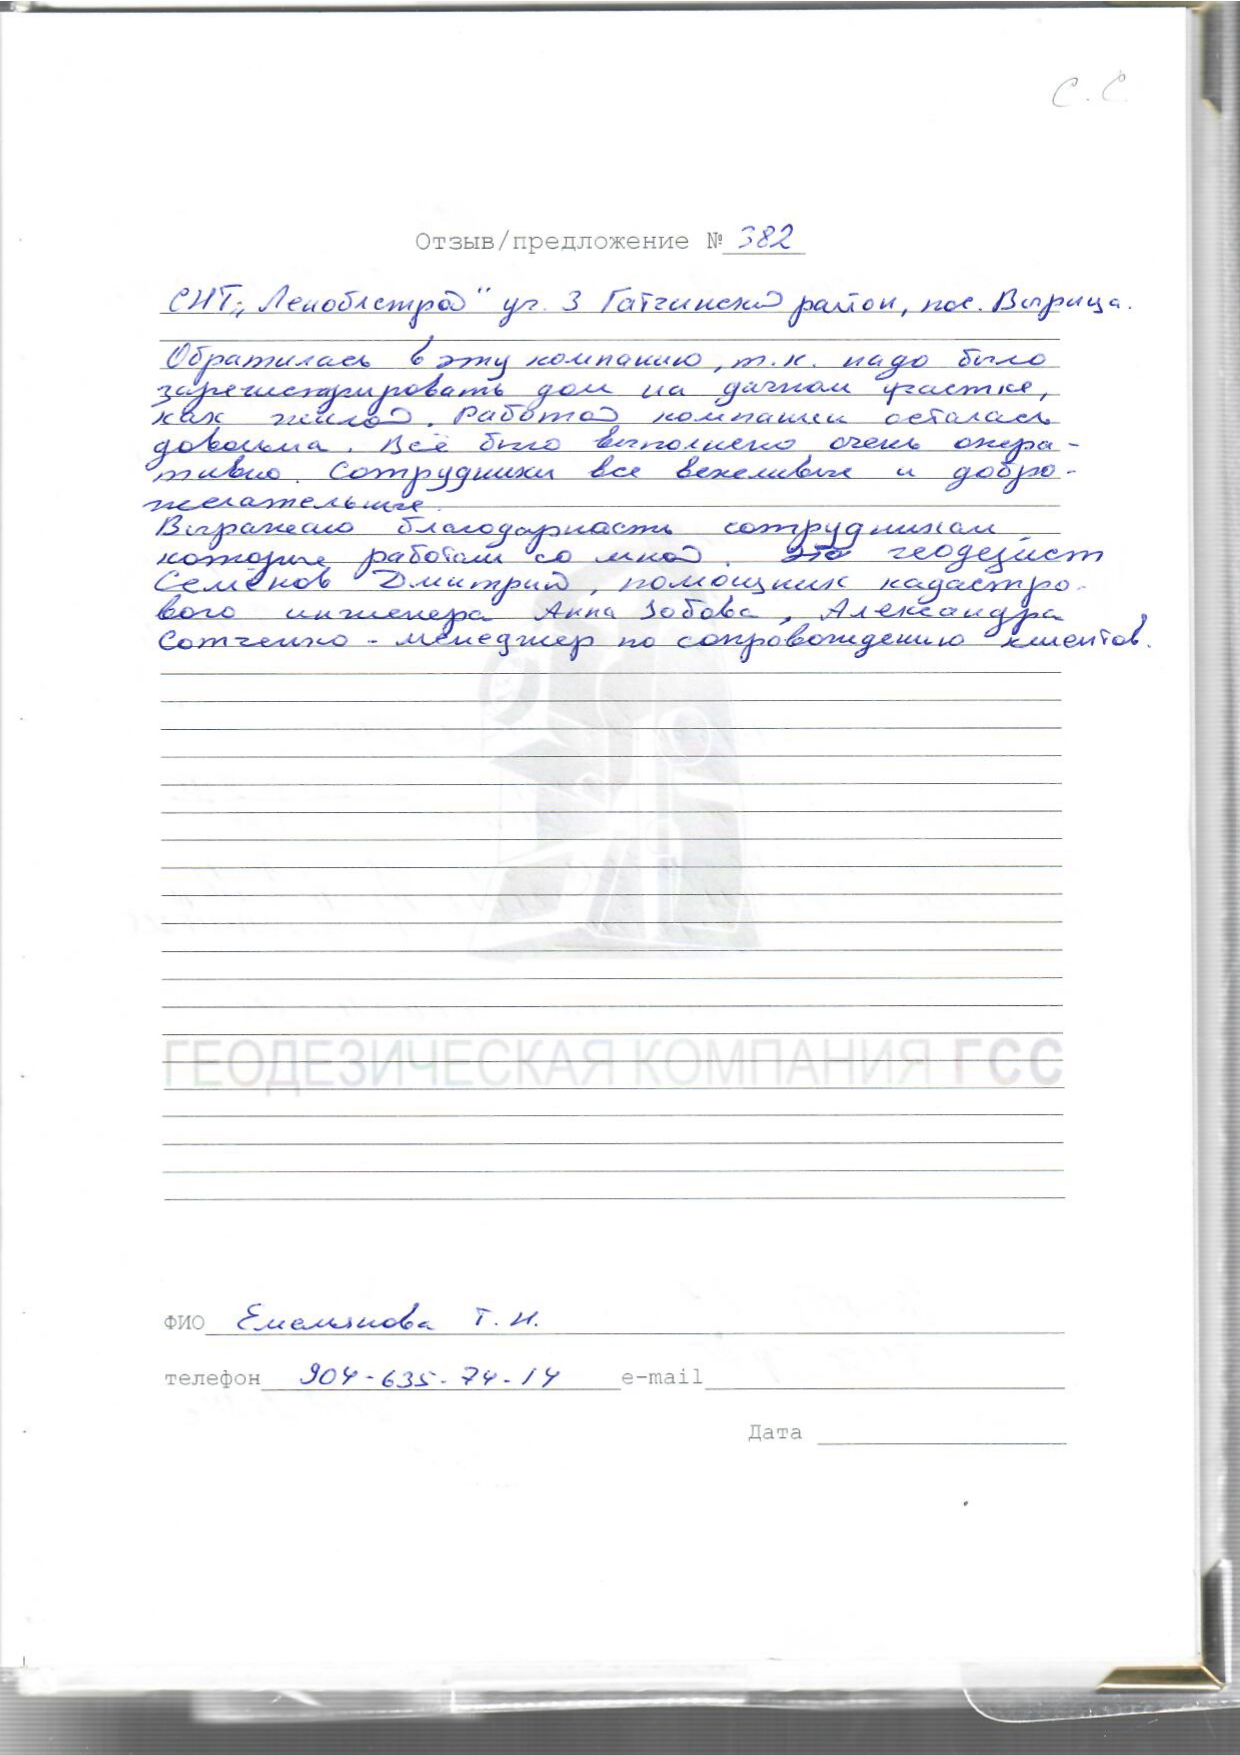 С.С
Отзыв/предложение № 382
СНТ „Леноблстрой" уч. 3 Гатчинский район, пос. Вырица.
Обратилась в эту компанию, т.к. надо было
зарегистрировать дом на дачном участке,
как жилой. Работой компании осталась
довольна. Всё было выполнено очень опера-
тивно. Сотрудники все вежливые и добро-
желательные.
Выражаю благодарность сотрудникам,
которые работали со мной. это геодезист
Семёнов Дмитрий, помощник кадастро-
вого инженера Анна Зобова, Александра
Сотченко - менеджер по сопровождению клиентов.
ГЕОДЕЗИЧЕСКАЯ КОМПАНИЯ ГСС
ФИО Емельянова Т.Н.
телефон 904-635-74-14 e-mail
Дата